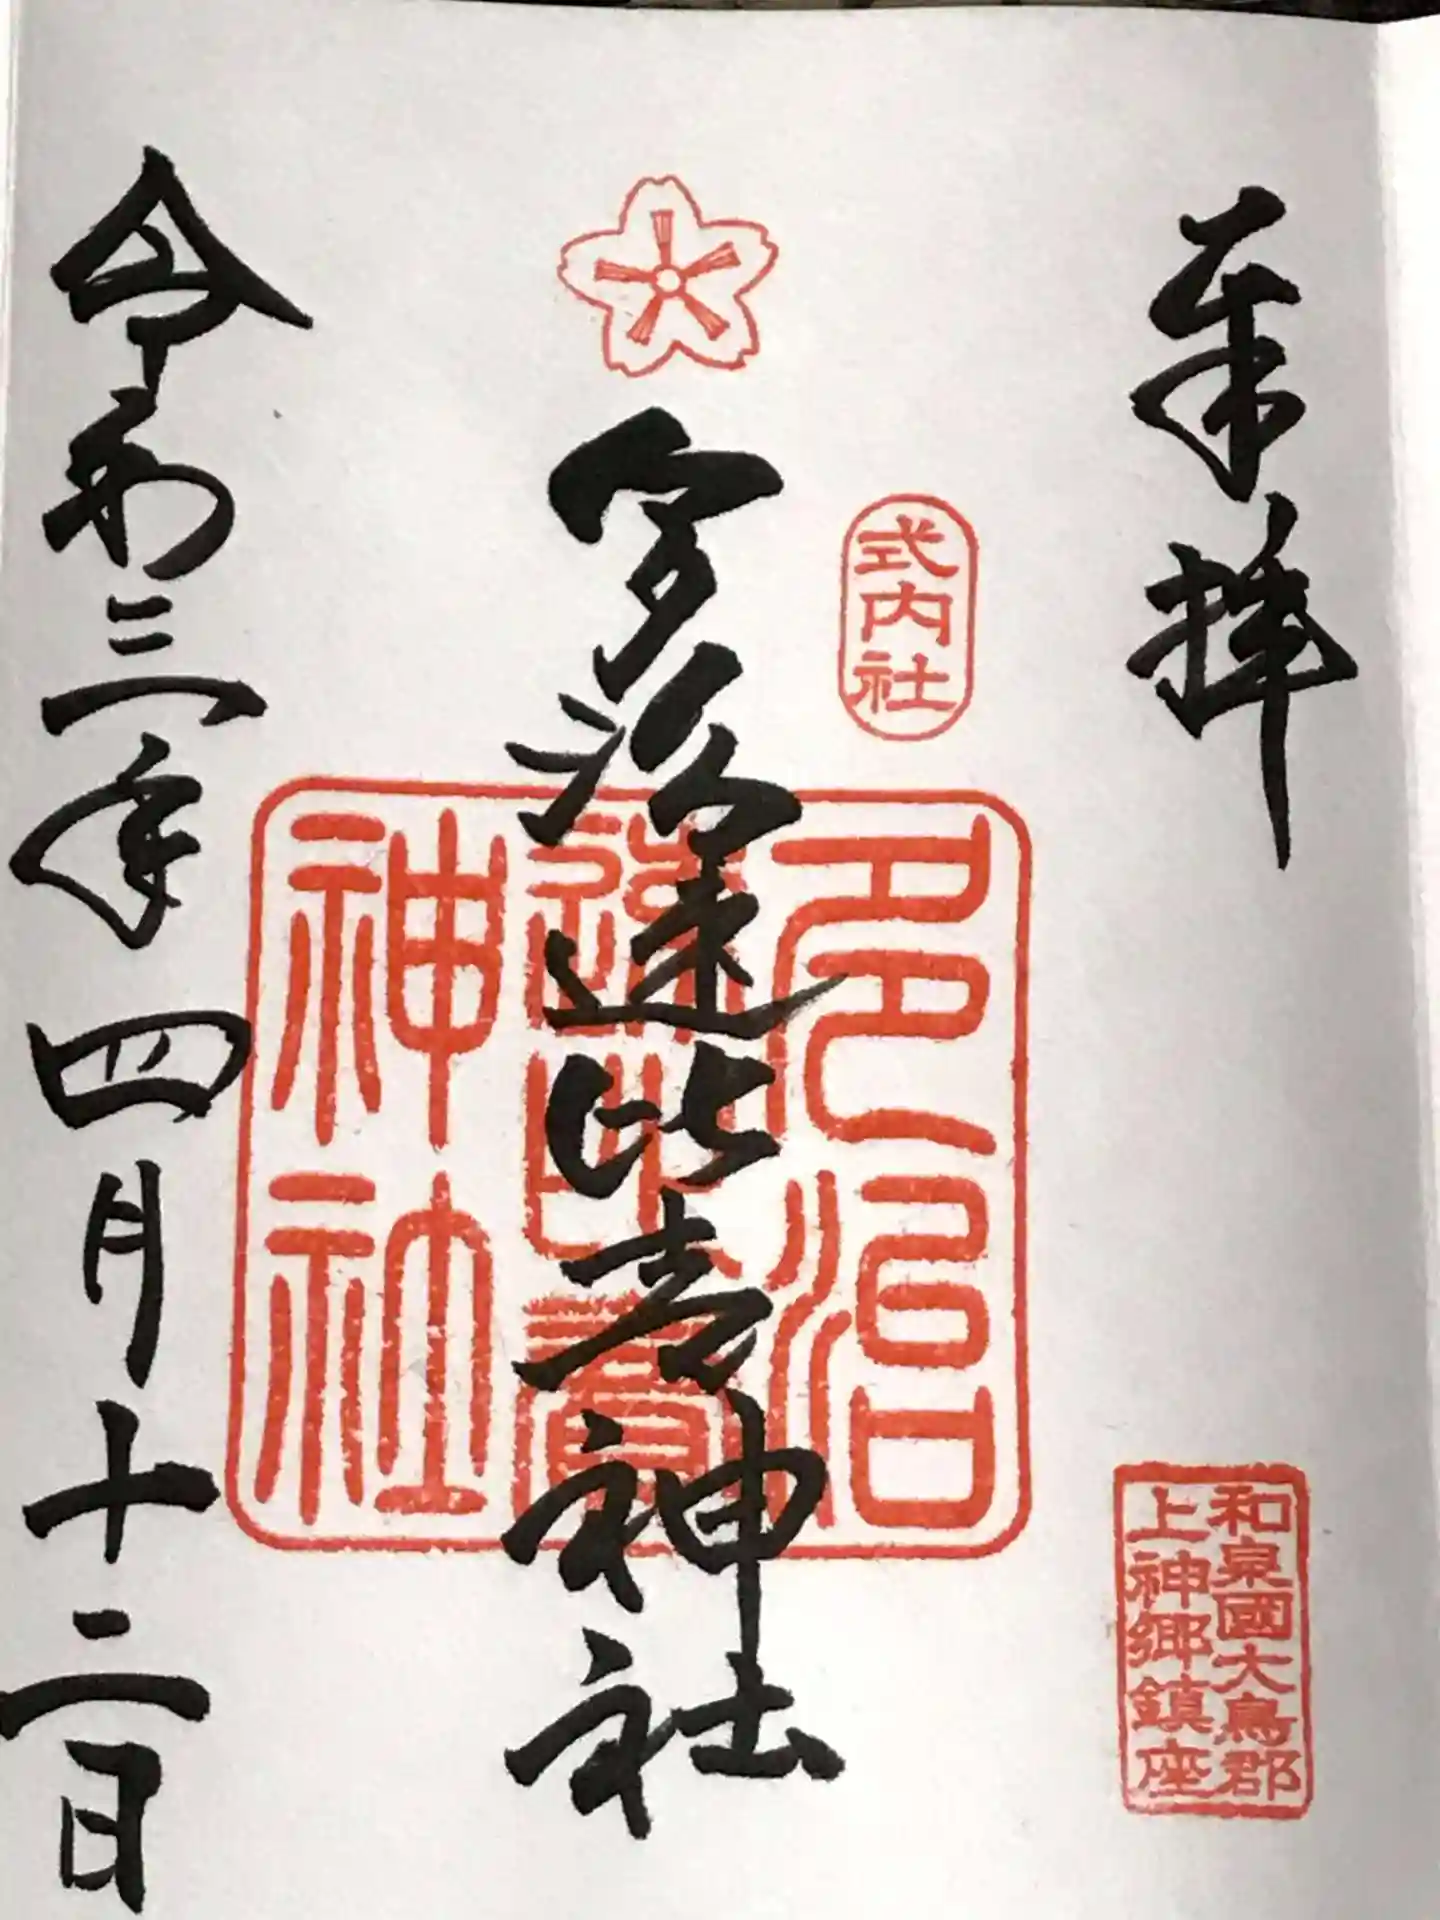 奉拝
和泉國大鳥郡
上神郷鎮座
式内社
多治速比売神社
多治
速比賣
神社
令和三年四月十二日